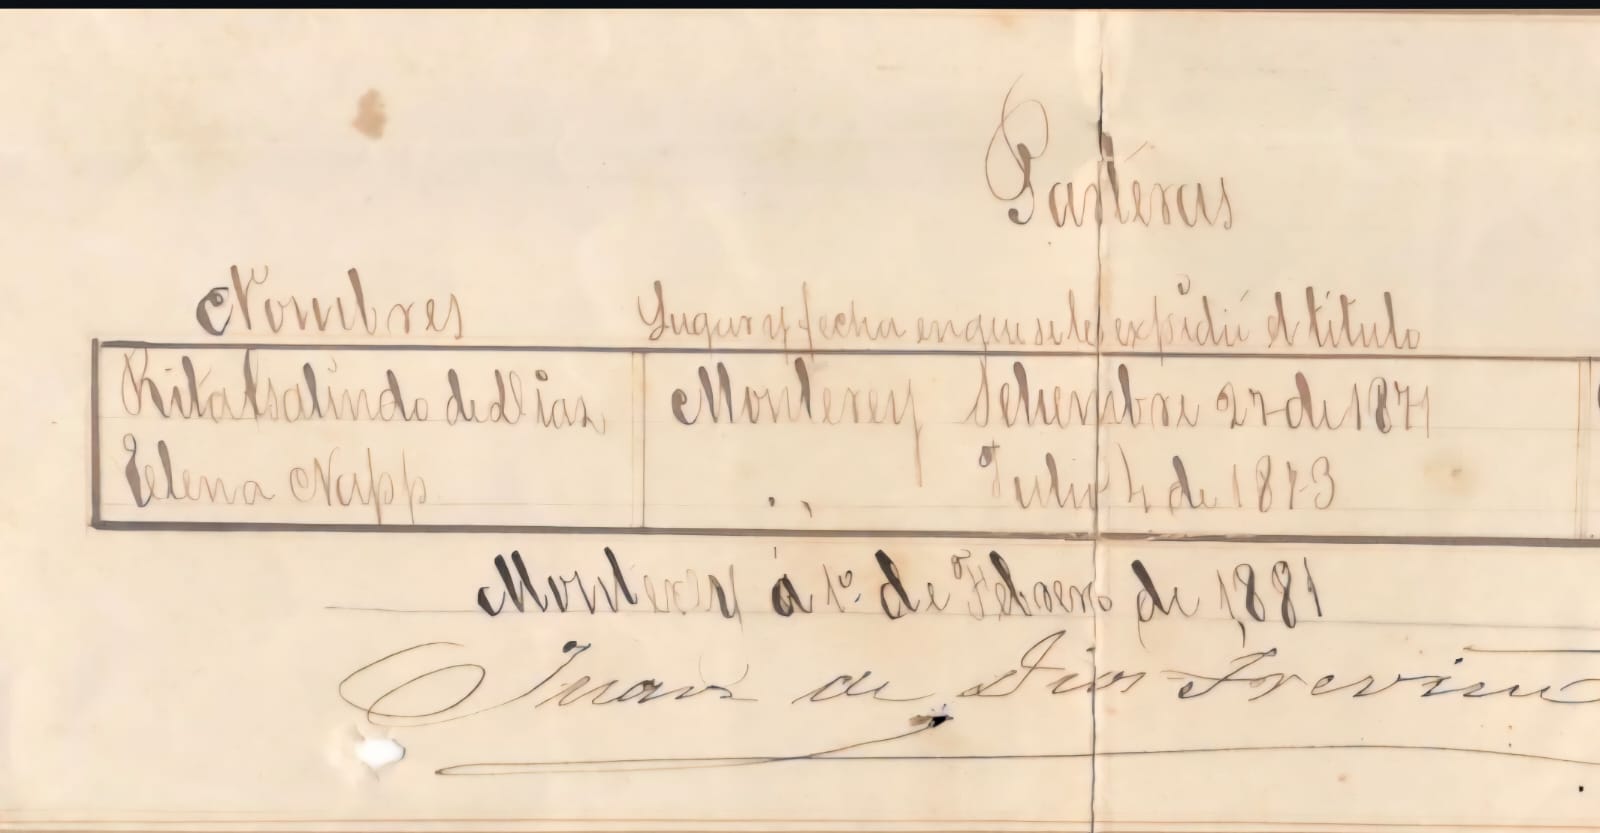 Parteras
Nombres Lugar y fecha en que se les expidió el título
Rita Galindo de Dias Monterey Setiembre 27 de 1871
Elena Napp „ Julio 4 de 1873
Monterey á 1º. de Febrero de 1,881
Juan de Dios Treviño